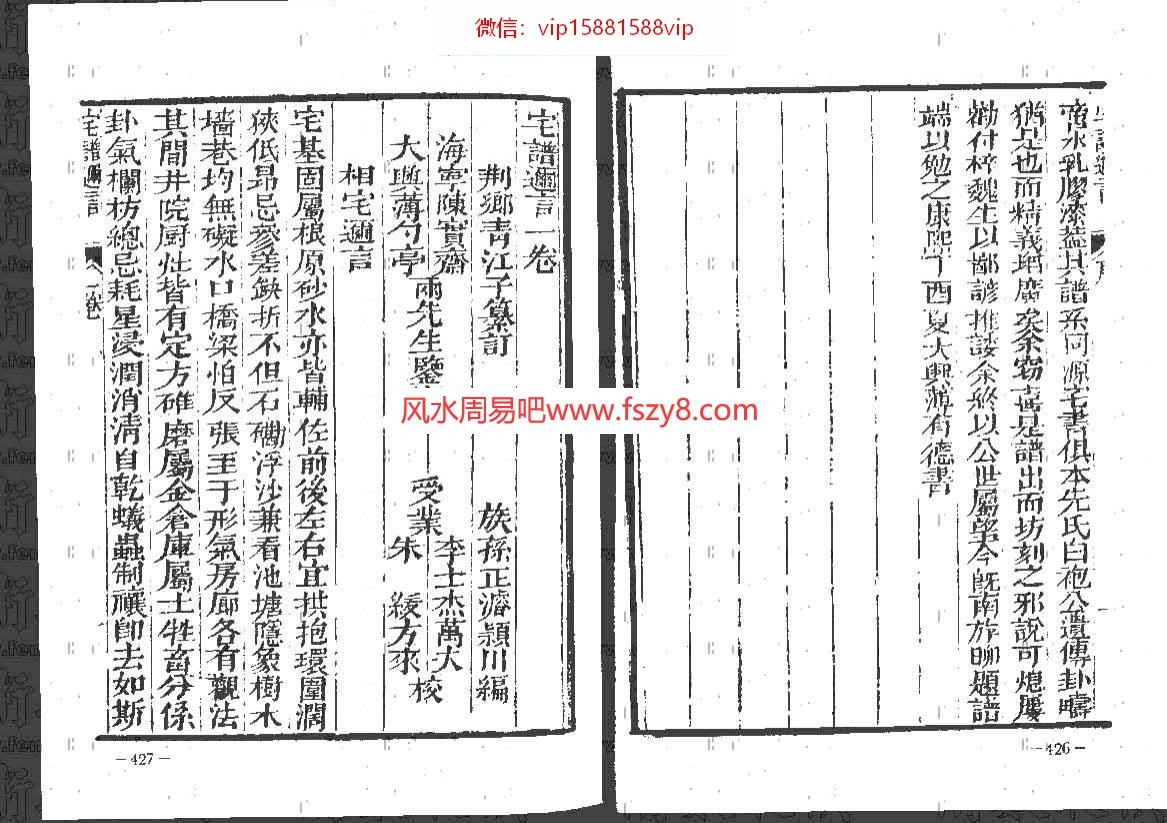 微信：vip15881588vip
啻水乳膠漆蓋其譜系同源宅書俱本先氏白袍公遺傳卦疇
猶是也而精義增廣矣余竊喜是譜出而坊刻之邪說可熄屢
勸付梓魏生以鄙諺推諉余終以公世屬望今既南旋聊題譜
端以勉之康熙丁酉夏大興薄有德書
-426-
宅譜邇言一卷
荆鄉青江子纂訂 族孫正濬穎川編
海寧陳實齋
大興薄勺亭
兩先生鑒
受業
李士杰萬大
朱 綬方來
校
相宅邇言
宅基固屬根原砂水亦皆輔佐前後左右宜拱抱環圍濶
狹低昻忌參差缺折不但石磡浮沙兼看池塘隱象樹木
墻巷均無礙水口橋梁怕反張至于形氣房廊各有觀法
其間井院厨灶皆有定方碓磨屬金倉庫屬土牲畜分係
卦氣欄枋總忌耗星浸潤消清自乾蟻蟲制禳卽去如斯
宅譜邇言 一卷
-427-
风水周易吧www.fszy8.com